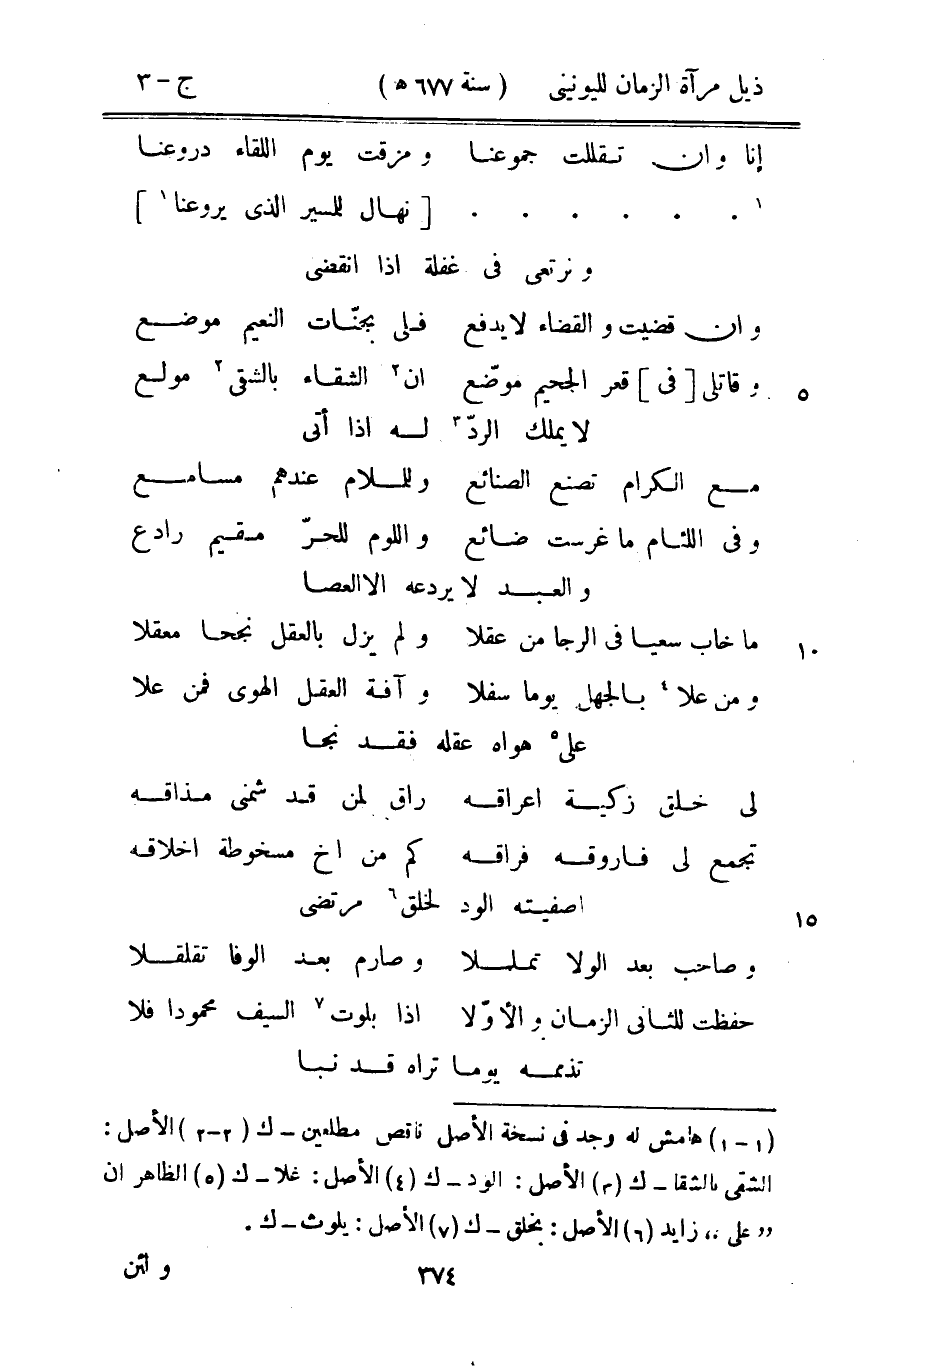 ذيل مرآة الزمان لليونينى ( سنة ٦٧٧ ه ) ج – ٣
إنا و ان تقللت جموعنا و مزقت يوم اللقاء دروعنا
١ . . . . . . [ نهال للسير الذى يروعنا ١ ]
و نرتعى فى غفلة اذا انقضى
و ان قضيت و القضاء لا يدفع فلى بجنّات النعيم موضع
٥ و قاتلى [ فى ] قعر الجحيم موضّع ان ٢ الشقاء بالشقى ٢ مولع
لا يملك الردّ ٣ له اذا أتى
مع الكرام تصنع الصنائع و للملام عندهم مسامع
و فى اللئام ما غرست ضائع و اللوم للحرّ مقيم رادع
و العبد لا يردعه الا العصا
١٠ ما خاب سعيا فى الرجا من عقلا و لم يزل بالعقل نجحا معقلا
و من علا ٤ بالجهل يوما سفلا و آفة العقل الهوى فمن علا
على ٥ هواه عقله فقد نجا
لى خلق زكية اعراقه راق لمن قد شمنى مذاقه
تجمع لى فاروقه فراقه كم من اخ مسخوطة اخلاقه
١٥ اصفيته الود لخلق ٦ مرتضى
و صاحب بعد الولا تململا و صارم بعد الوفا تقلقلا
حفظت للثانى الزمان و الأوّلا اذا بلوت ٧ السيف محمودا فلا
تذممه يوما تراه قد نبا
(١–١) هامش له وجد فى نسخة الأصل ناقص مطلعين – ك (٢–٢) الأصل :
الشقى بالشقا – ك (٣) الأصل : الود – ك (٤) الأصل : غلا – ك (٥) الظاهر ان
,, على ,, زايد (٦) الأصل : بخلق – ك (٧) الأصل : يلوث – ك .
٣٧٤ و لئن